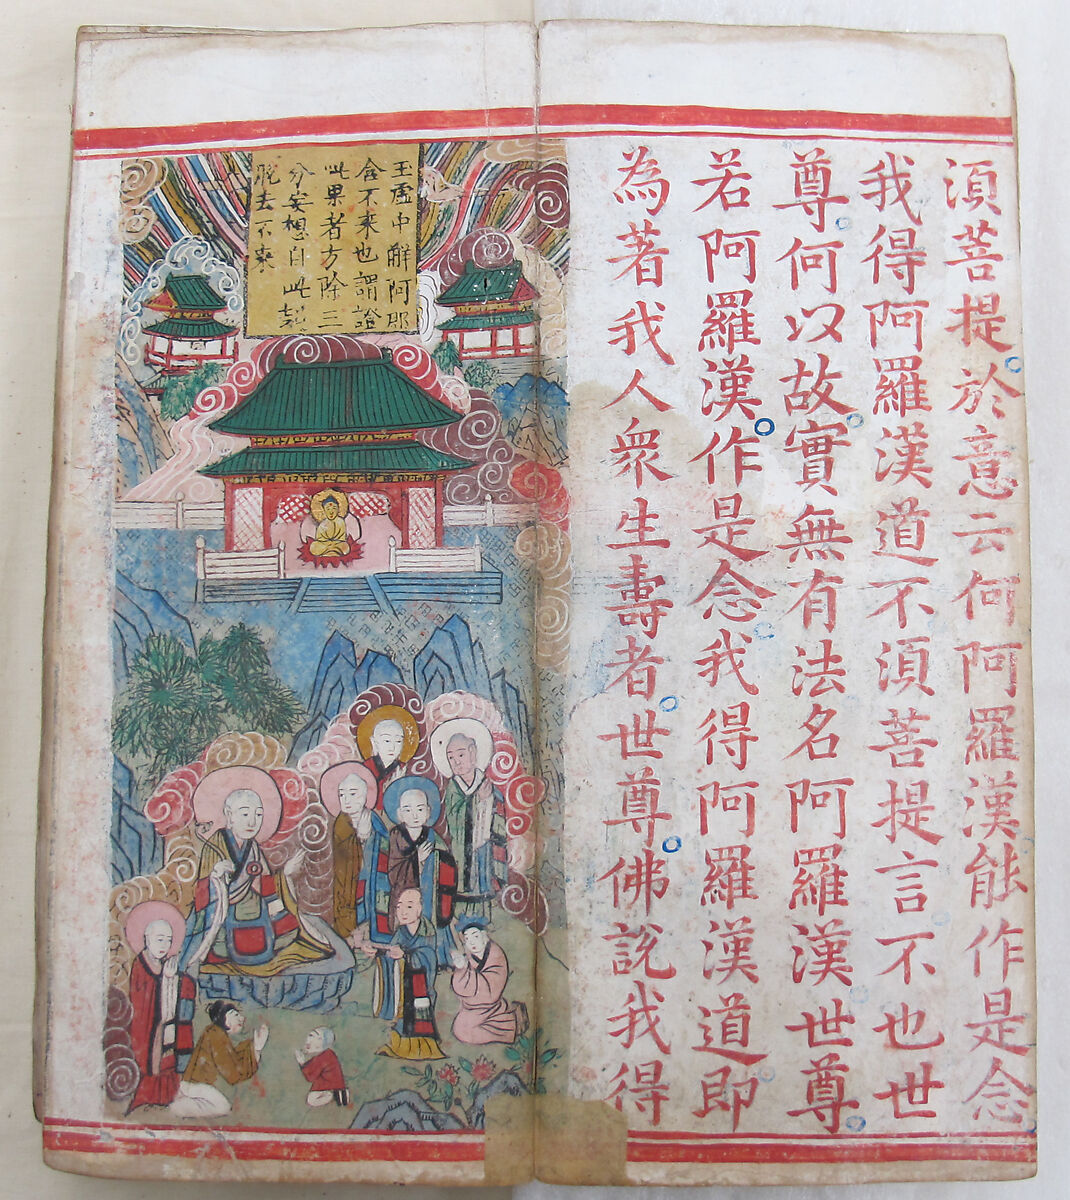 須菩提。於意云何阿羅漢能作是念
我得阿羅漢道不須菩提言不也世
尊。何以故。實無有法名阿羅漢世尊。
若阿羅漢。作是念。我得阿羅漢道即
為著我人衆生壽者。世尊。佛說我得
玉虛中解阿那
含不來也謂證
此果者方除三
分妄想自此
脫去不來